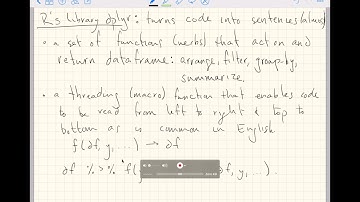 R's library dplyr: turns code into sentences (almost)
• a set of functions (verbs) that act on and
return dataframe: arrange, filter, group-by,
summarize.
• a threading (macro) function that enables code
to be read from left to right & top to
bottom as is common in English.
f(df, y, ...) → df
df %>% f( df, y, ...).